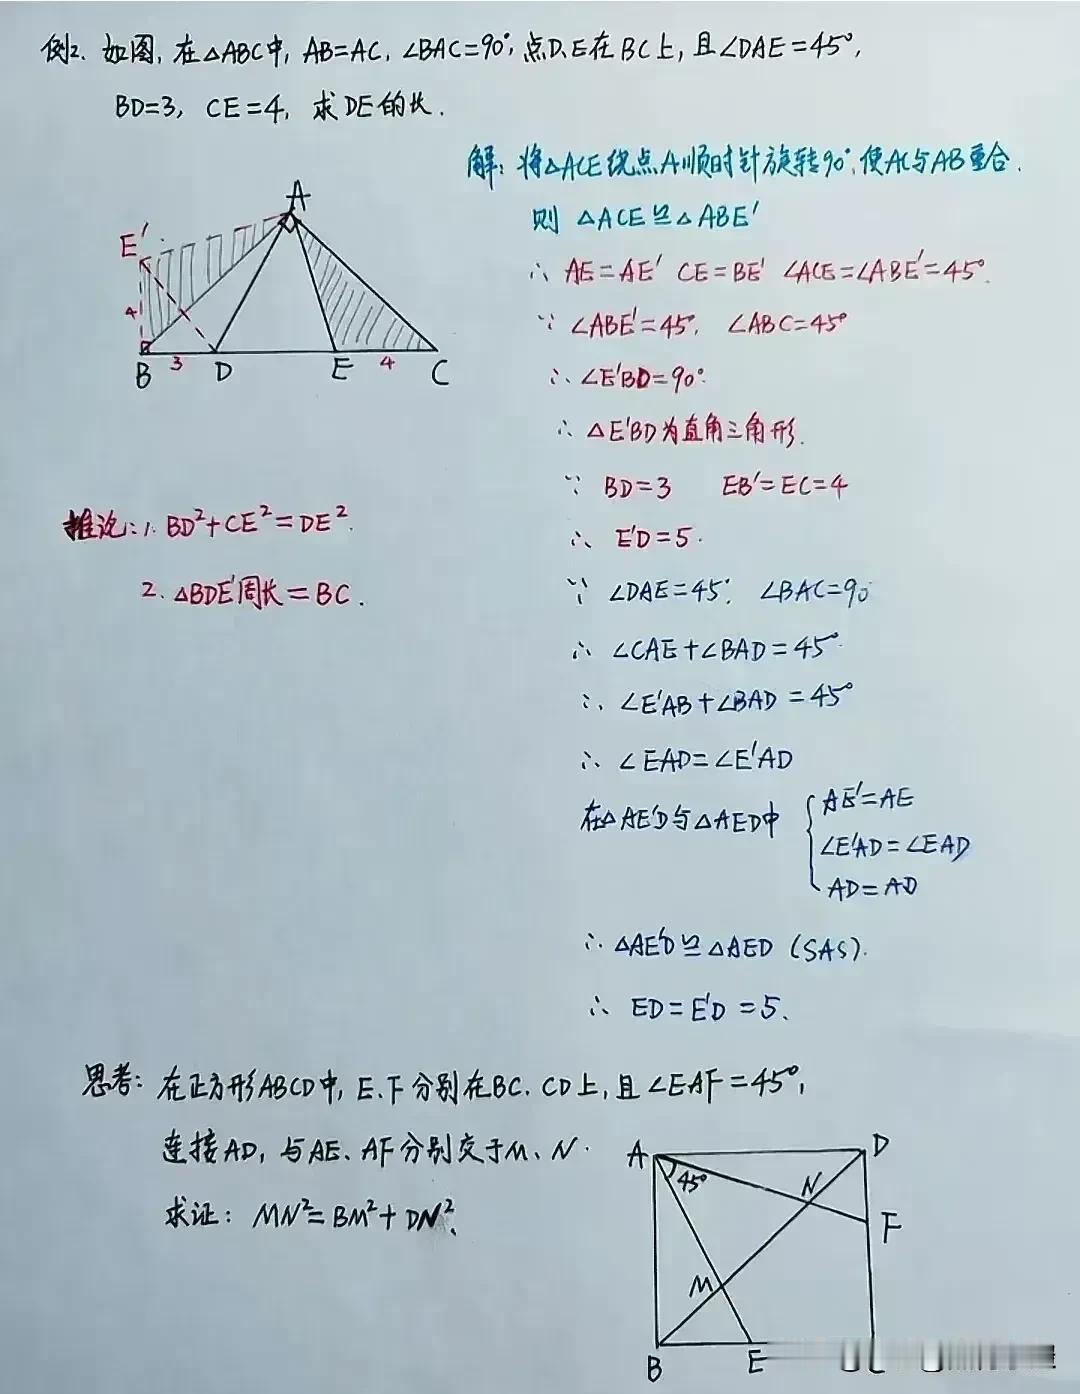 例2. 如图, 在△ABC中, AB=AC, ∠BAC=90°, 点D、E在BC上, 且∠DAE=45°,
BD=3, CE=4, 求DE的长.
解: 将△ACE绕点A顺时针旋转90°, 使AC与AB重合.
则 △ACE≌△ABE′
∴ AE=AE′ CE=BE′ ∠ACE=∠ABE′=45°.
∵ ∠ABE′=45°, ∠ABC=45°
∴ ∠E′BD=90°.
∴ △E′BD为直角三角形.
∵ BD=3 EB′=EC=4
∴ E′D=5.
∵ ∠DAE=45°, ∠BAC=90
∴ ∠CAE+∠BAD=45°
∴ ∠E′AB+∠BAD=45°
∴ ∠EAD=∠E′AD
在△AE′D与△AED中
AE′=AE
∠E′AD=∠EAD
AD=AD
∴ △AE′D≌△AED (SAS).
∴ ED=E′D=5.
A
E′
4
B 3 D E 4 C
推论: 1. BD²+CE²=DE².
2. △BDE′周长=BC.
思考: 在正方形ABCD中, E、F分别在BC、CD上, 且∠EAF=45°,
连接AD, 与AE、AF分别交于M、N.
求证: MN²=BM²+DN².
A D
45°
N
F
M
B E